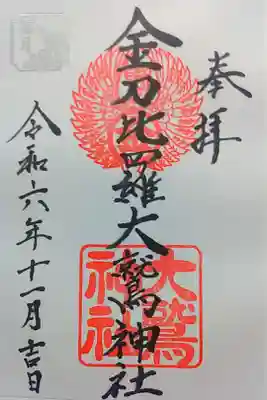 奉拝
金刀比羅大鷲神社
大鷲
神社
令和六年十一月吉日